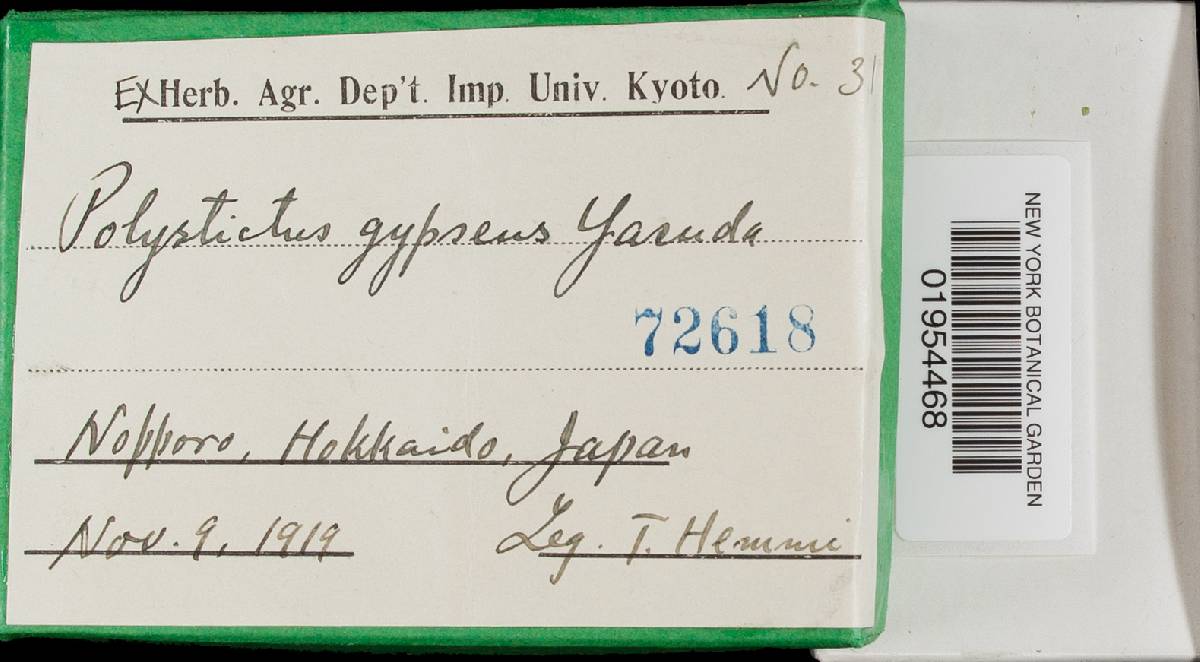 Ex Herb. Agr. Dep't. Imp. Univ. Kyoto. No. 31
Polystictus gypseus Yasuda
72618
Nopporo, Hokkaido, Japan
Nov. 9, 1919 Leg. T. Hemmi
NEW YORK BOTANICAL GARDEN
01954468